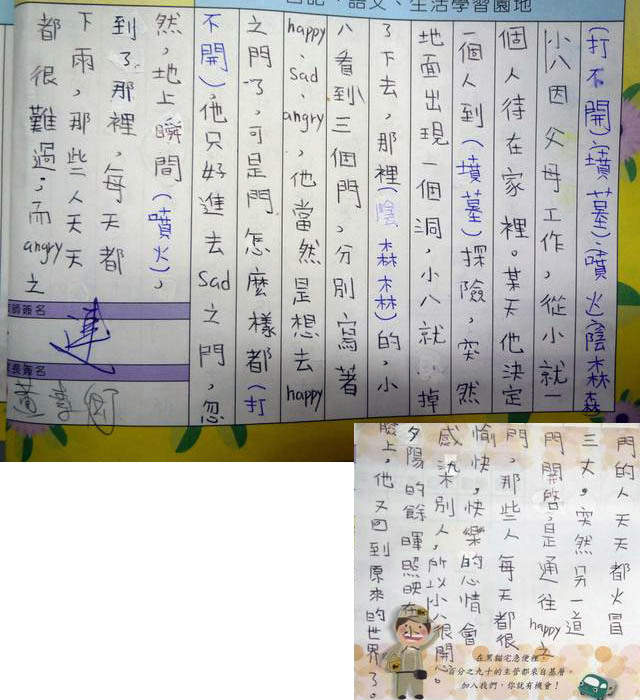 日記、語文、生活學習園地
(打不開)、(墳墓)、(噴火)、(陰森森)
小八因父母工作,從小就一
個人待在家裡。某天他決定
一個人到(墳墓)探險,突然
地面出現一個洞,小八就掉
了下去,那裡(陰森森)的,小
八看到三個門,分別寫著
happy、sad、angry,他當然是想去happy
之門了,可是門怎麼樣都(打
不開),他只好進去sad之門,忽
然,地上瞬間(噴火),
到了那裡,每天都
下雨,那些人天天
都很難過;而angry之
師簽名
長簽名
門的人天天都火冒
三丈。突然另一道
門開啓,是通往happy之
門,那些人每天都很
愉快,快樂的心情會
感染別人,所以小八很開心。
夕陽的餘暉照映在
臉上,他又回到原來的世界了。
在黑貓宅急便裡,
百分之九十的主管都來自基層。
加入我們,你就有機會!